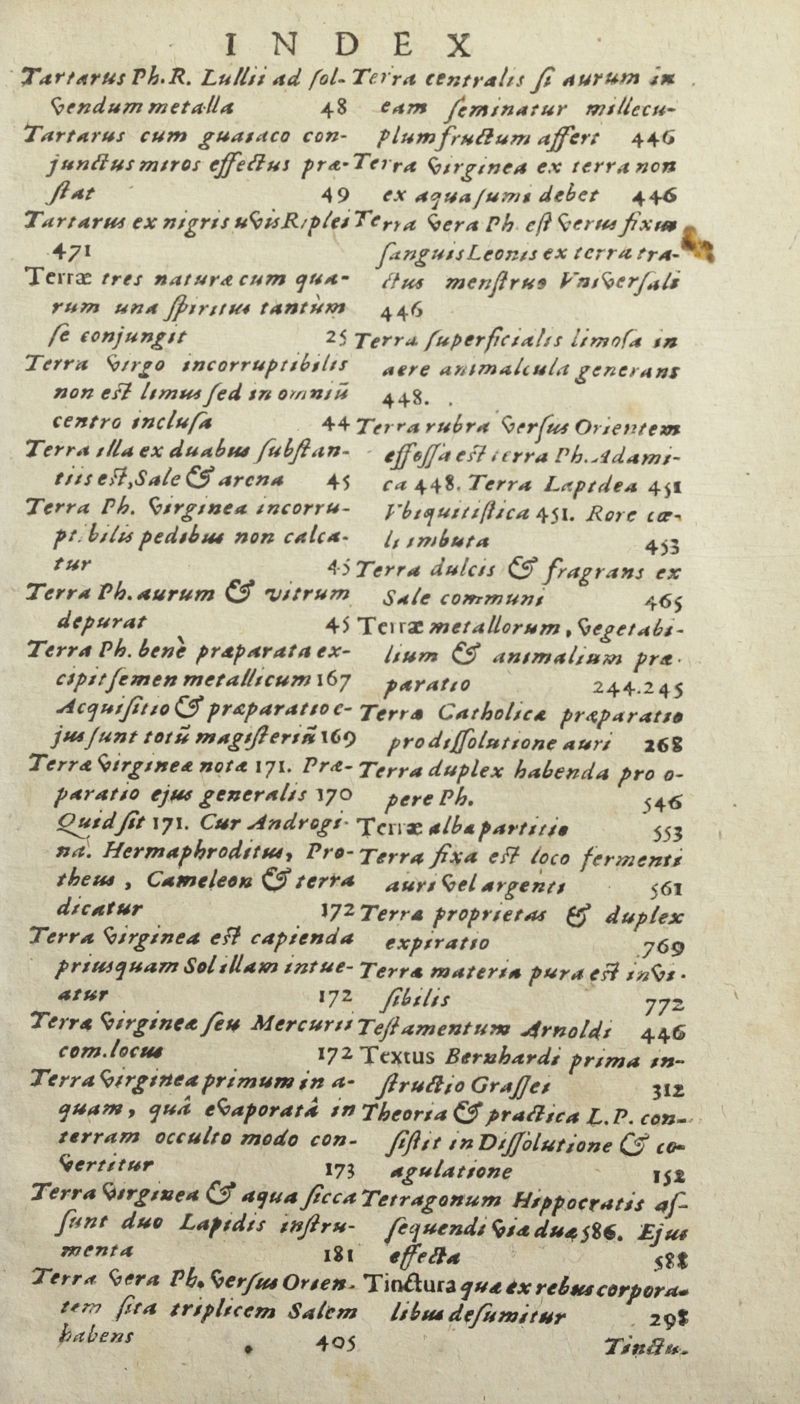 INDEX
Tartarus Ph. R. Lullii ad sol-
vendum metalla 48
Tartarus cum guaiaco con-
junctus miros effectus præ-
stat 49
Tartarus ex nigris uvis Riplei
471
Terræ tres naturæ cum qua-
rum una spiritus tantùm
se conjungit 25
Terra virgo incorruptibilis
non est limus sed in omniũ
centro inclusa 44
Terra illa ex duabus substan-
tiis est, Sale & arena 45
Terra Ph. virginea incorru-
ptibilis pedibus non calca-
tur 45
Terra Ph. aurum & vitrum
depurat 45
Terra Ph. benè præparata ex-
cipit semen metallicum 167
Acquisitio & præparatio e-
jus sunt totũ magisteriũ 169
Terræ virgineæ nota 171. Præ-
paratio ejus generalis 170
Quid sit 171. Cur Androgi-
na. Hermaphroditus, Pro-
theus, Cameleon & terra
dicatur 172
Terra virginea est capienda
priusquam Sol illam intue-
atur 172
Terræ virgineæ seu Mercurii
com. locus 172
Terra virginea primum in a-
quam, quâ evaporatâ in
terram occulto modo con-
vertitur 173
Terra virginea & aqua sicca
sunt duo Lapidis instru-
menta 181
Terra vera Ph. versus Orien-
tem sita triplicem Salem
habens 405
Terra centralis si aurum in
eam seminatur millecu-
plum fructum affert 446
Terra virginea ex terra non
ex aqua sumi debet 446
Terra vera Ph est verus fixus
sanguis Leonis ex terra tra-
ctus menstruo Universali
446
Terra superficialis limosa in
aere animalcula generans
448.
Terra rubra versus Orientem
effossa est terra Ph. Adami-
ca 448. Terra Lapidea 451
Ubiquitistica 451. Rore cœ-
li imbuta 453
Terra dulcis & fragrans ex
Sale communi 465
Terræ metallorum, vegetabi-
lium & animalium præ-
paratio 244.245
Terræ Catholicæ præparatio
pro dissolutione auri 268
Terra duplex habenda pro o-
pere Ph. 546
Terræ albæ partitio 553
Terra fixa est loco fermenti
auri vel argenti 561
Terræ proprietas & duplex
expiratio 769
Terræ materia pura est invi-
sibilis 772
Testamentum Arnoldi 446
Textus Bernhardi prima in-
structio Grassei 312
Theoria & practica L. P. con-
sistit in Dissolutione & co-
agulatione 152
Tetragonum Hippocratis as-
sequendi via duæ 586. Ejus
effecta 588
Tinctura quæ ex rebus corpora-
libus desumitur 298
Tinctu-